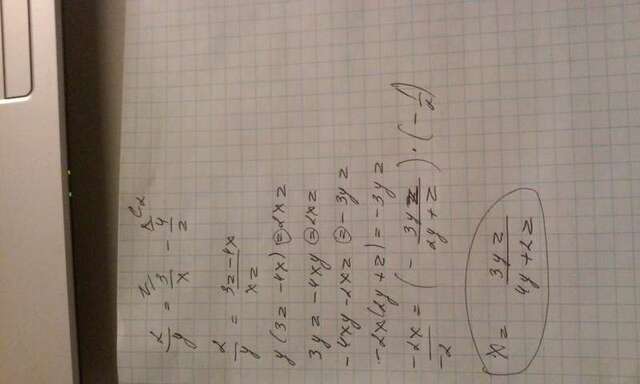 2/y = 3/x - 4/z
2/y = (3z-4x)/xz
y(3z-4x) = 2xz
3yz-4xy = 2xz
-4xy-2xz = -3yz
-2x(2y+z) = -3yz
-2x/-2 = (- 3yz/(2y+z)) · (- 1/2)
x = 3yz/(4y+2z)